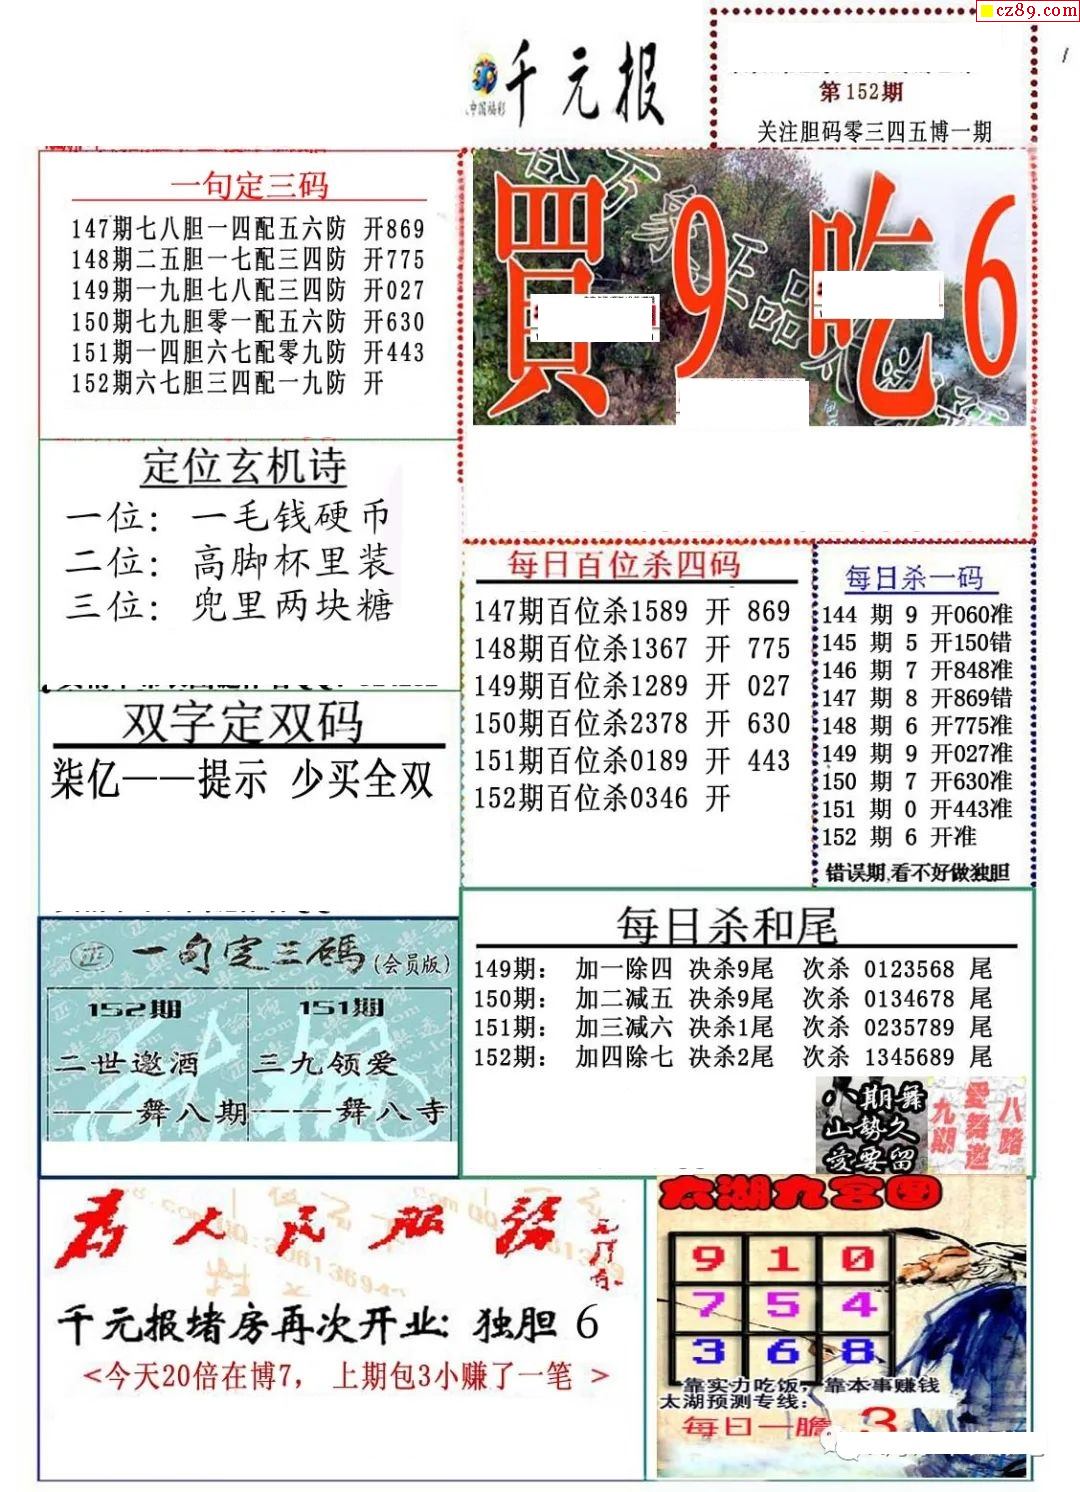 cz89.com
千元报
中国福彩
第152期
关注胆码零三四五博一期
一句定三码
147期七八胆一四配五六防 开869
148期二五胆一七配三四防 开775
149期一九胆七八配三四防 开027
150期七九胆零一配五六防 开630
151期一四胆六七配零九防 开443
152期六七胆三四配一九防 开
買9吃6
定位玄机诗
一位：一毛钱硬币
二位：高脚杯里装
三位：兜里两块糖
每日百位杀四码
147期百位杀1589 开 869
148期百位杀1367 开 775
149期百位杀1289 开 027
150期百位杀2378 开 630
151期百位杀0189 开 443
152期百位杀0346 开
每日杀一码
144 期 9 开060准
145 期 5 开150错
146 期 7 开848准
147 期 8 开869错
148 期 6 开775准
149 期 9 开027准
150 期 7 开630准
151 期 0 开443准
152 期 6 开准
错误期,看不好做独胆
双字定双码
柒亿——提示 少买全双
一句定三碼(会员版)
152期
二世邀酒
——舞八期
151期
三九领爱
——舞八寺
每日杀和尾
149期： 加一除四 决杀9尾 次杀 0123568 尾
150期： 加二减五 决杀9尾 次杀 0134678 尾
151期： 加三减六 决杀1尾 次杀 0235789 尾
152期： 加四除七 决杀2尾 次杀 1345689 尾
八期舞
山势久
爱要留
八路
爱舞邀
九期
为人民服务
千元报堵房再次开业：独胆 6
<今天20倍在博7， 上期包3小赚了一笔 >
太湖九宫图
9 1 0
7 5 4
3 6 8
靠实力吃饭，靠本事赚钱
太湖预测专线：
每日一膽 3